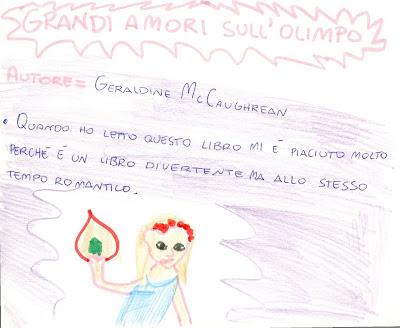 GRANDI AMORI SULL'OLIMPO
AUTORE = GERALDINE McCAUGHREAN
• QUANDO HO LETTO QUESTO LIBRO MI È PIACIUTO MOLTO
PERCHÉ È UN LIBRO DIVERTENTE MA ALLO STESSO
TEMPO ROMANTICO.